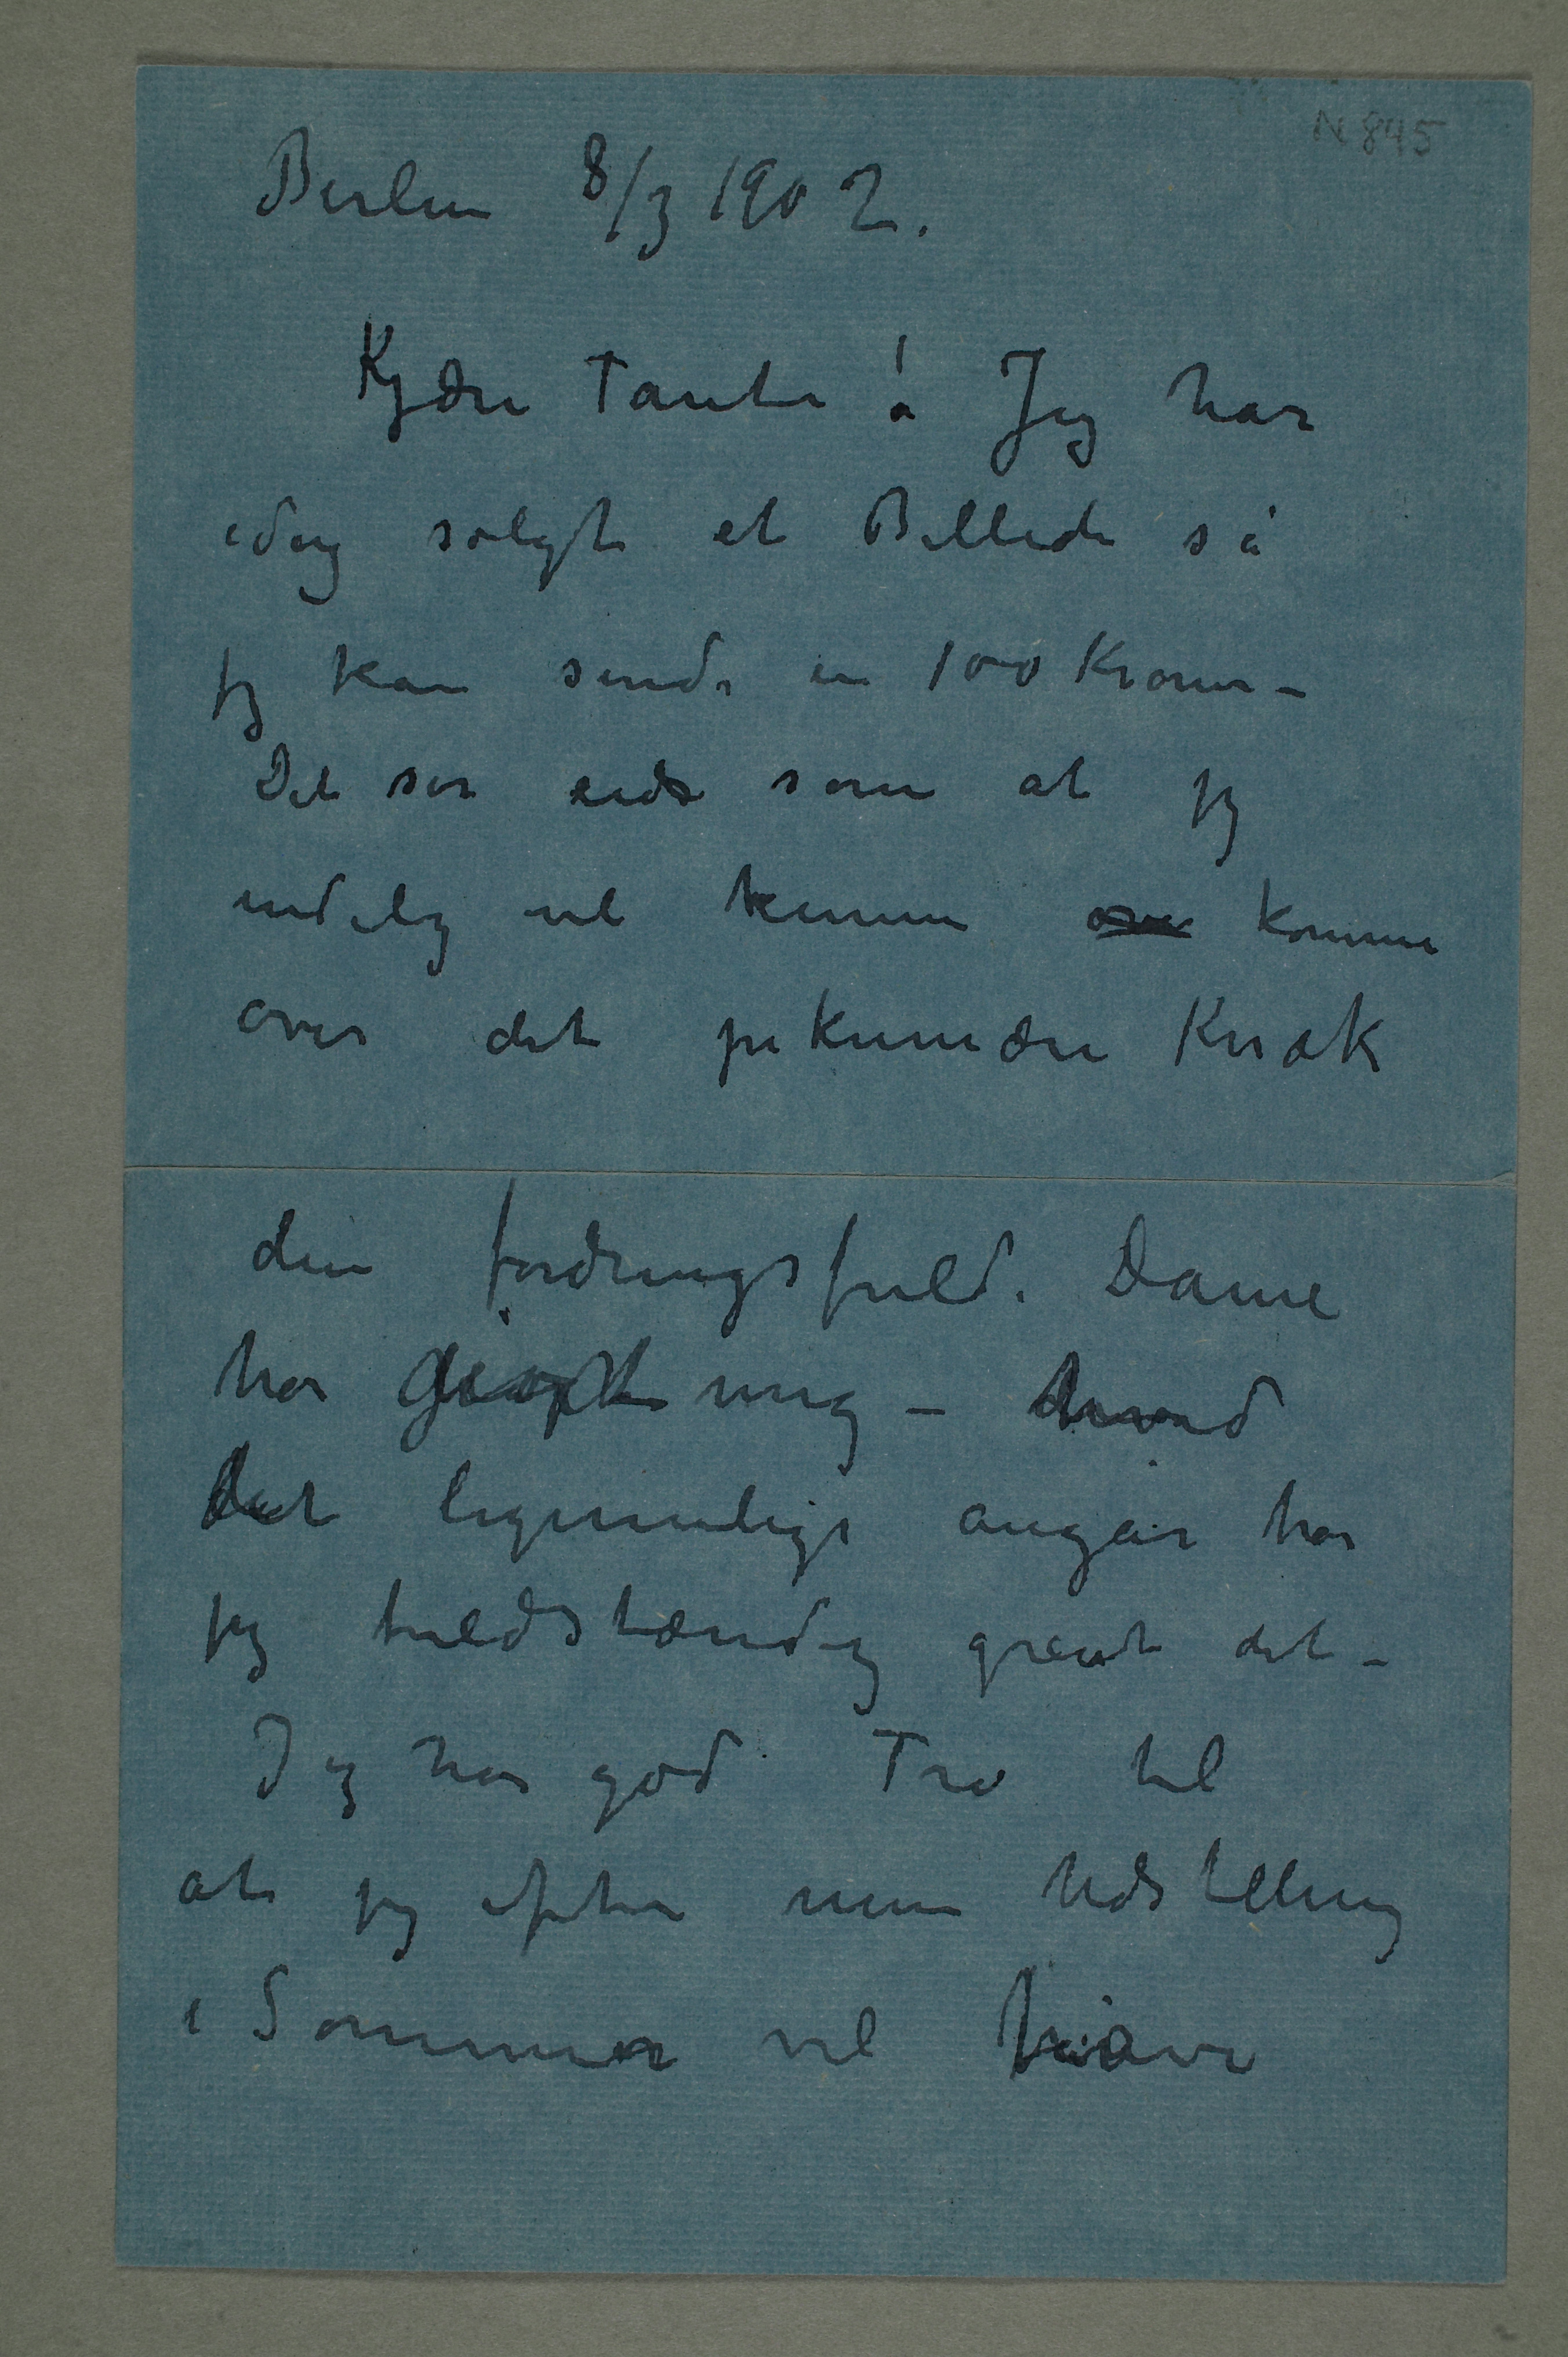 N 845
Berlin 8/3 1902.
Kjære Tante! Jeg har
idag solgt et Billede så
jeg kan sende en 100 Kroner –
Det ser uds som at jeg
endelig vil kunne over komme
over det pekuniære Knæk
den fordringsfulde Dame
har gjort mig – hvad
det legemelige angår har
jeg fuldstændig greiet det –
Jeg har god Tro til
at jeg efter min Udstilling
i Sommer vil have